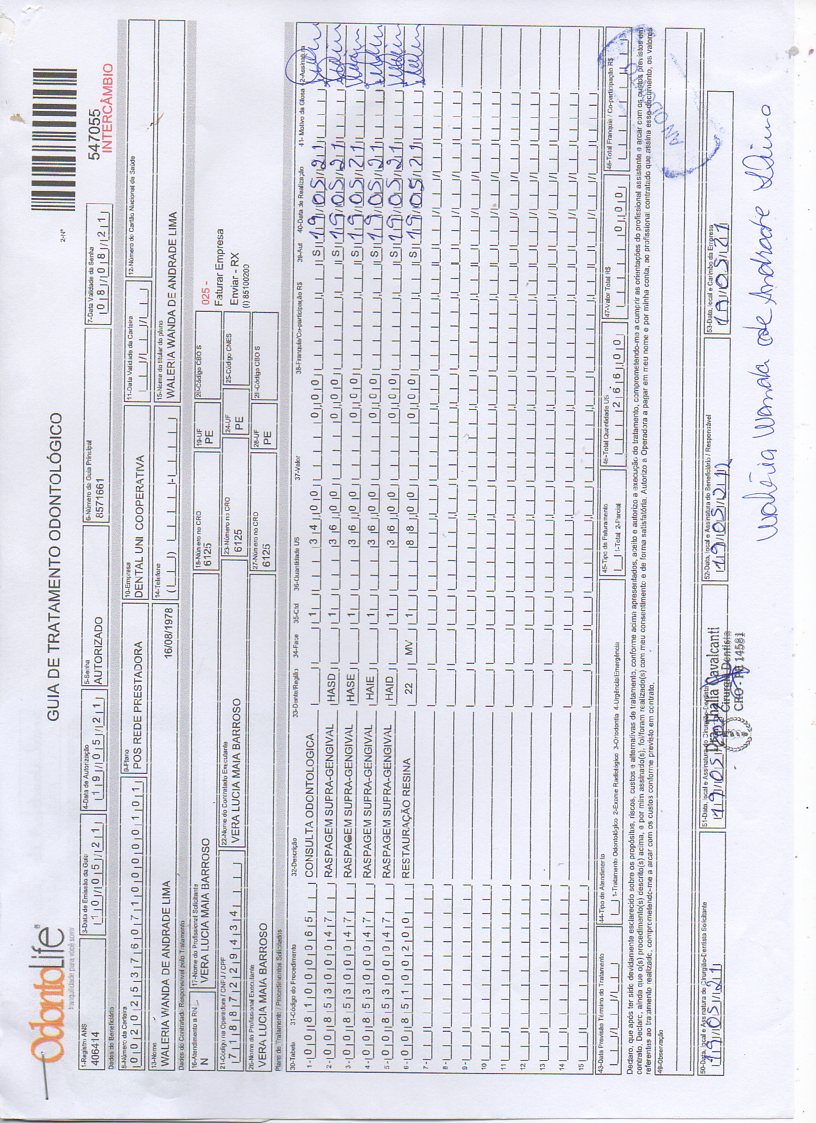 OdontoLife
tranquilidade para você sorrir
GUIA DE TRATAMENTO ODONTOLÓGICO
2-Nº
547055
INTERCÂMBIO
1-Registro ANS
406414
3-Data de Emissão da Guia
19/05/21
4-Data de Autorização
19/05/21
5-Senha
AUTORIZADO
6-Número da Guia Principal
8571661
7-Data Validade da Senha
08/08/21
Dados do Beneficiário
8-Número da Carteira
00202537607100000101
9-Plano
POS REDE PRESTADORA
10-Empresa
DENTAL UNI COOPERATIVA
11-Data Validade da Carteira
12-Número do Cartão Nacional de Saúde
13-Nome
WALERIA WANDA DE ANDRADE LIMA
16/08/1978
14-Telefone
15-Nome do titular do plano
WALERIA WANDA DE ANDRADE LIMA
Dados do Contratado Responsável pelo Tratamento
16-Atendimento a RN
N
17-Nome do Profissional Solicitante
VERA LUCIA MAIA BARROSO
18-Número no CRO
6125
19-UF
PE
20-Código CBO S
025 -
Faturar Empresa
Enviar - RX
(I) 85100200
21-Código na Operadora / CNPJ / CPF
71887229434
22-Nome do Contratado Executante
VERA LUCIA MAIA BARROSO
23-Número no CRO
6125
24-UF
PE
25-Código CNES
26-Nome do Profissional Executante
VERA LUCIA MAIA BARROSO
27-Número no CRO
6125
28-UF
PE
29-Código CBO S
Plano de Tratamento / Procedimentos Solicitados
30-Tabela 31-Código do Procedimento 32-Descrição 33-Dente/Região 34-Face 35-Qtd 36-Quantidade US 37-Valor 38-Franquia/Co-participação R$ 39-Aut 40-Data de Realização 41- Motivo da Glosa 42-Assinatura
1- 00 81000065 CONSULTA ODONTOLOGICA 1 34,00 0,00 S 19/05/21
2- 00 85300047 RASPAGEM SUPRA-GENGIVAL HASD 1 36,00 0,00 S 19/05/21
3- 00 85300047 RASPAGEM SUPRA-GENGIVAL HASE 1 36,00 0,00 S 19/05/21
4- 00 85300047 RASPAGEM SUPRA-GENGIVAL HAIE 1 36,00 0,00 S 19/05/21
5- 00 85300047 RASPAGEM SUPRA-GENGIVAL HAID 1 36,00 0,00 S 19/05/21
6- 00 85100200 RESTAURAÇÃO RESINA 22 MV 1 88,00 0,00 S 19/05/21
7-
8-
9-
10
11
12
13
14
15
43-Data Previsão Término do Tratamento
44-Tipo de Atendimento
1-Tratamento Odontológico 2-Exame Radiológico 3-Ortodontia 4-Urgência/Emergência
45-Tipo de Faturamento
1-Total 2-Parcial
46-Total Quantidade US
266,00
47-Valor Total R$
0,00
48-Total Franquia / Co-participação R$
Declaro, que após ter sido devidamente esclarecido sobre os propósitos, riscos, custos e alternativas de tratamento, conforme acima apresentados, aceito e autorizo a execução do tratamento, comprometendo-me a cumprir as orientações do profissional assistente e arcar com os custos previstos em
contrato. Declaro, ainda que o(s) procedimento(s) descrito(s) acima, e por mim assinado(s), foi/foram realizado(s) com meu consentimento e de forma satisfatória. Autorizo a Operadora a pagar em meu nome e por minha conta, ao profissional contratado que assina esse documento, os valores
referentes ao tratamento realizado, comprometendo-me a arcar com os custos conforme previsto em contrato.
49-Observação
50-Data, local e Assinatura do Cirurgião-Dentista Solicitante
19/05/21
51-Data, local e Assinatura do Cirurgião-Dentista
19/05/21
Cavalcanti
Cirurgiã Dentista
14581
52-Data, local e Assinatura do Beneficiário / Responsável
19/05/21
53-Data, local e Carimbo da Empresa
19/05/21
Waléria Wanda de Andrade Lima